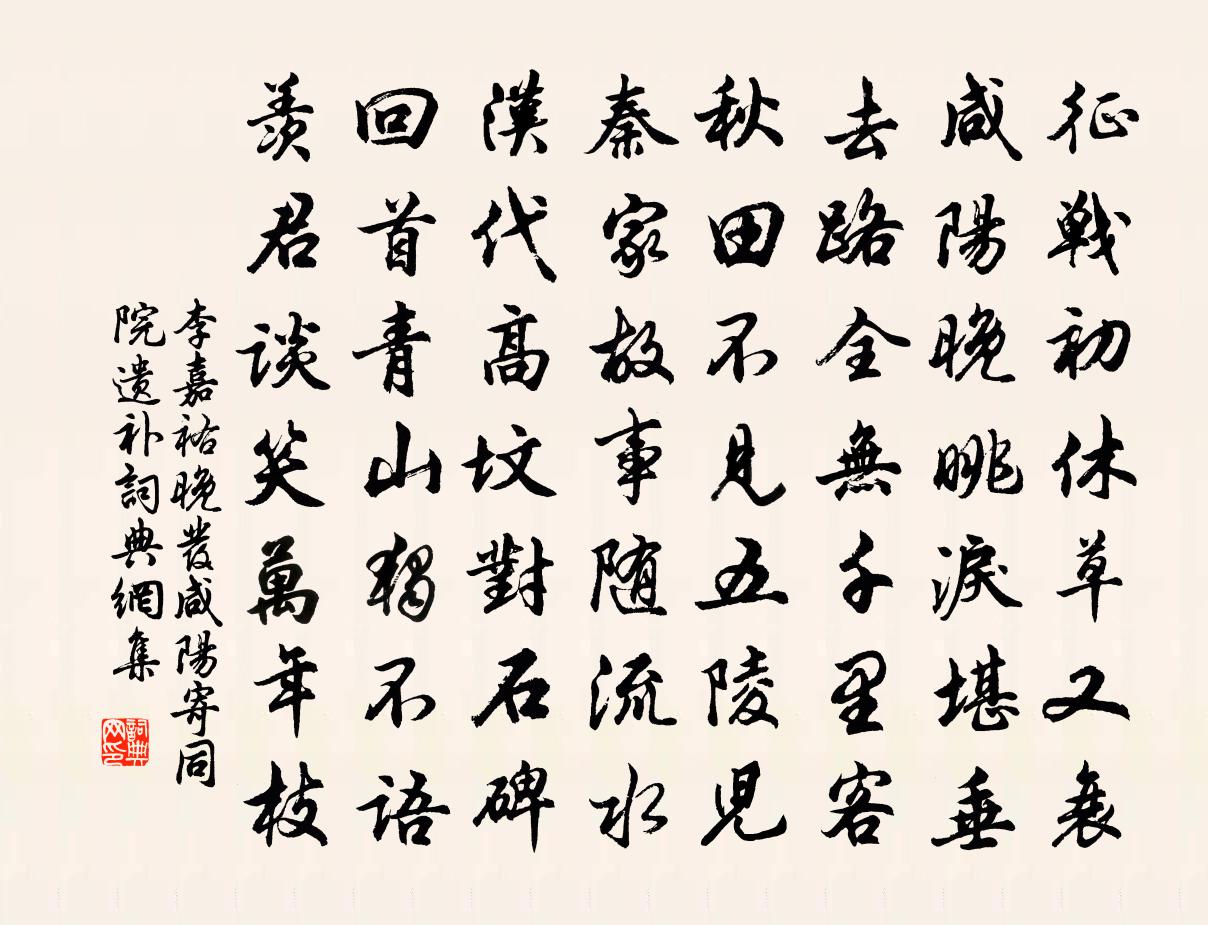 征戦初休草又衰
咸陽晚眺淚堪垂
去路全無千里客
秋田不見五陵児
秦家故事随流水
漢代高墳對石碑
回首青山独不語
羨君談笑萬年枝
李嘉祐晚發咸陽寄同
院遺补詞典網集
詞典
网印